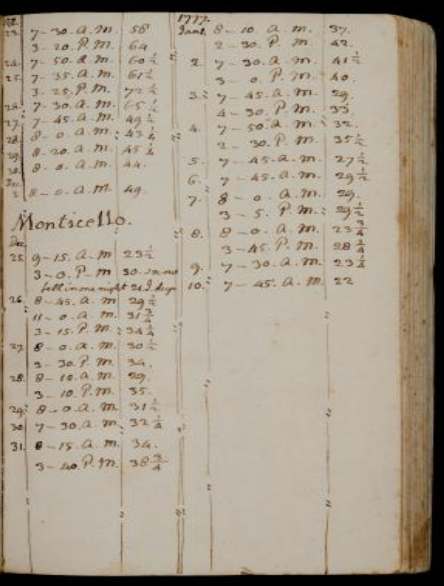 23. 7-30. A.M. 58
3-20. P.M. 64
24. 7-50. A.M. 60 1/2
25. 7-35. A.M. 61 1/2
3-25. P.M. 72 1/2
26. 7-30. A.M. 65 1/2
27. 7-45. A.M. 49 1/2
28. 8-0. A.M. 43 1/4
29. 8-20. A.M. 45 1/4
30. 8-0. A.M. 44.
Dec.
2 8-0. A.M. 49.
Monticello.
Dec.
25. 9-15. A.M. 23 1/2
3-0. P.M 30. snow
fell in one night
26. 8-45. A.M 29 1/2
11-0. A.M 31 3/4
3-15. P.M. 34 1/4
27. 8-0. A.M. 30 1/2
3-30. P.M 34.
28. 8-10. A.M. 29.
3-10. P.M. 35.
29. 8-0. A.M. 31 1/2
30. 7-30. A.M. 32 1/4
31. 8-15. A.M. 34.
3-40. P.M. 38 3/4
1777.
Jan. 1. 8-10. A.M. 37.
2-30. P.M. 42.
2. 7-30. A.M 41 1/2
3-0. P.M 40.
3. 7-45. A.M 29.
4-30. P.M. 33.
4. 7-50. A.M 32.
2-30. P.M. 35 1/2
5. 7-45. A.M. 27 1/2
6. 7-45. A.M. 29 1/2
7. 8-0. A.M. 29.
3-5. P.M. 29 1/2
8. 8-0. A.M. 23 3/4
3-45. P.M. 28 3/4
9. 7-30. A.M. 23 1/2
10. 7-45. A.M. 22